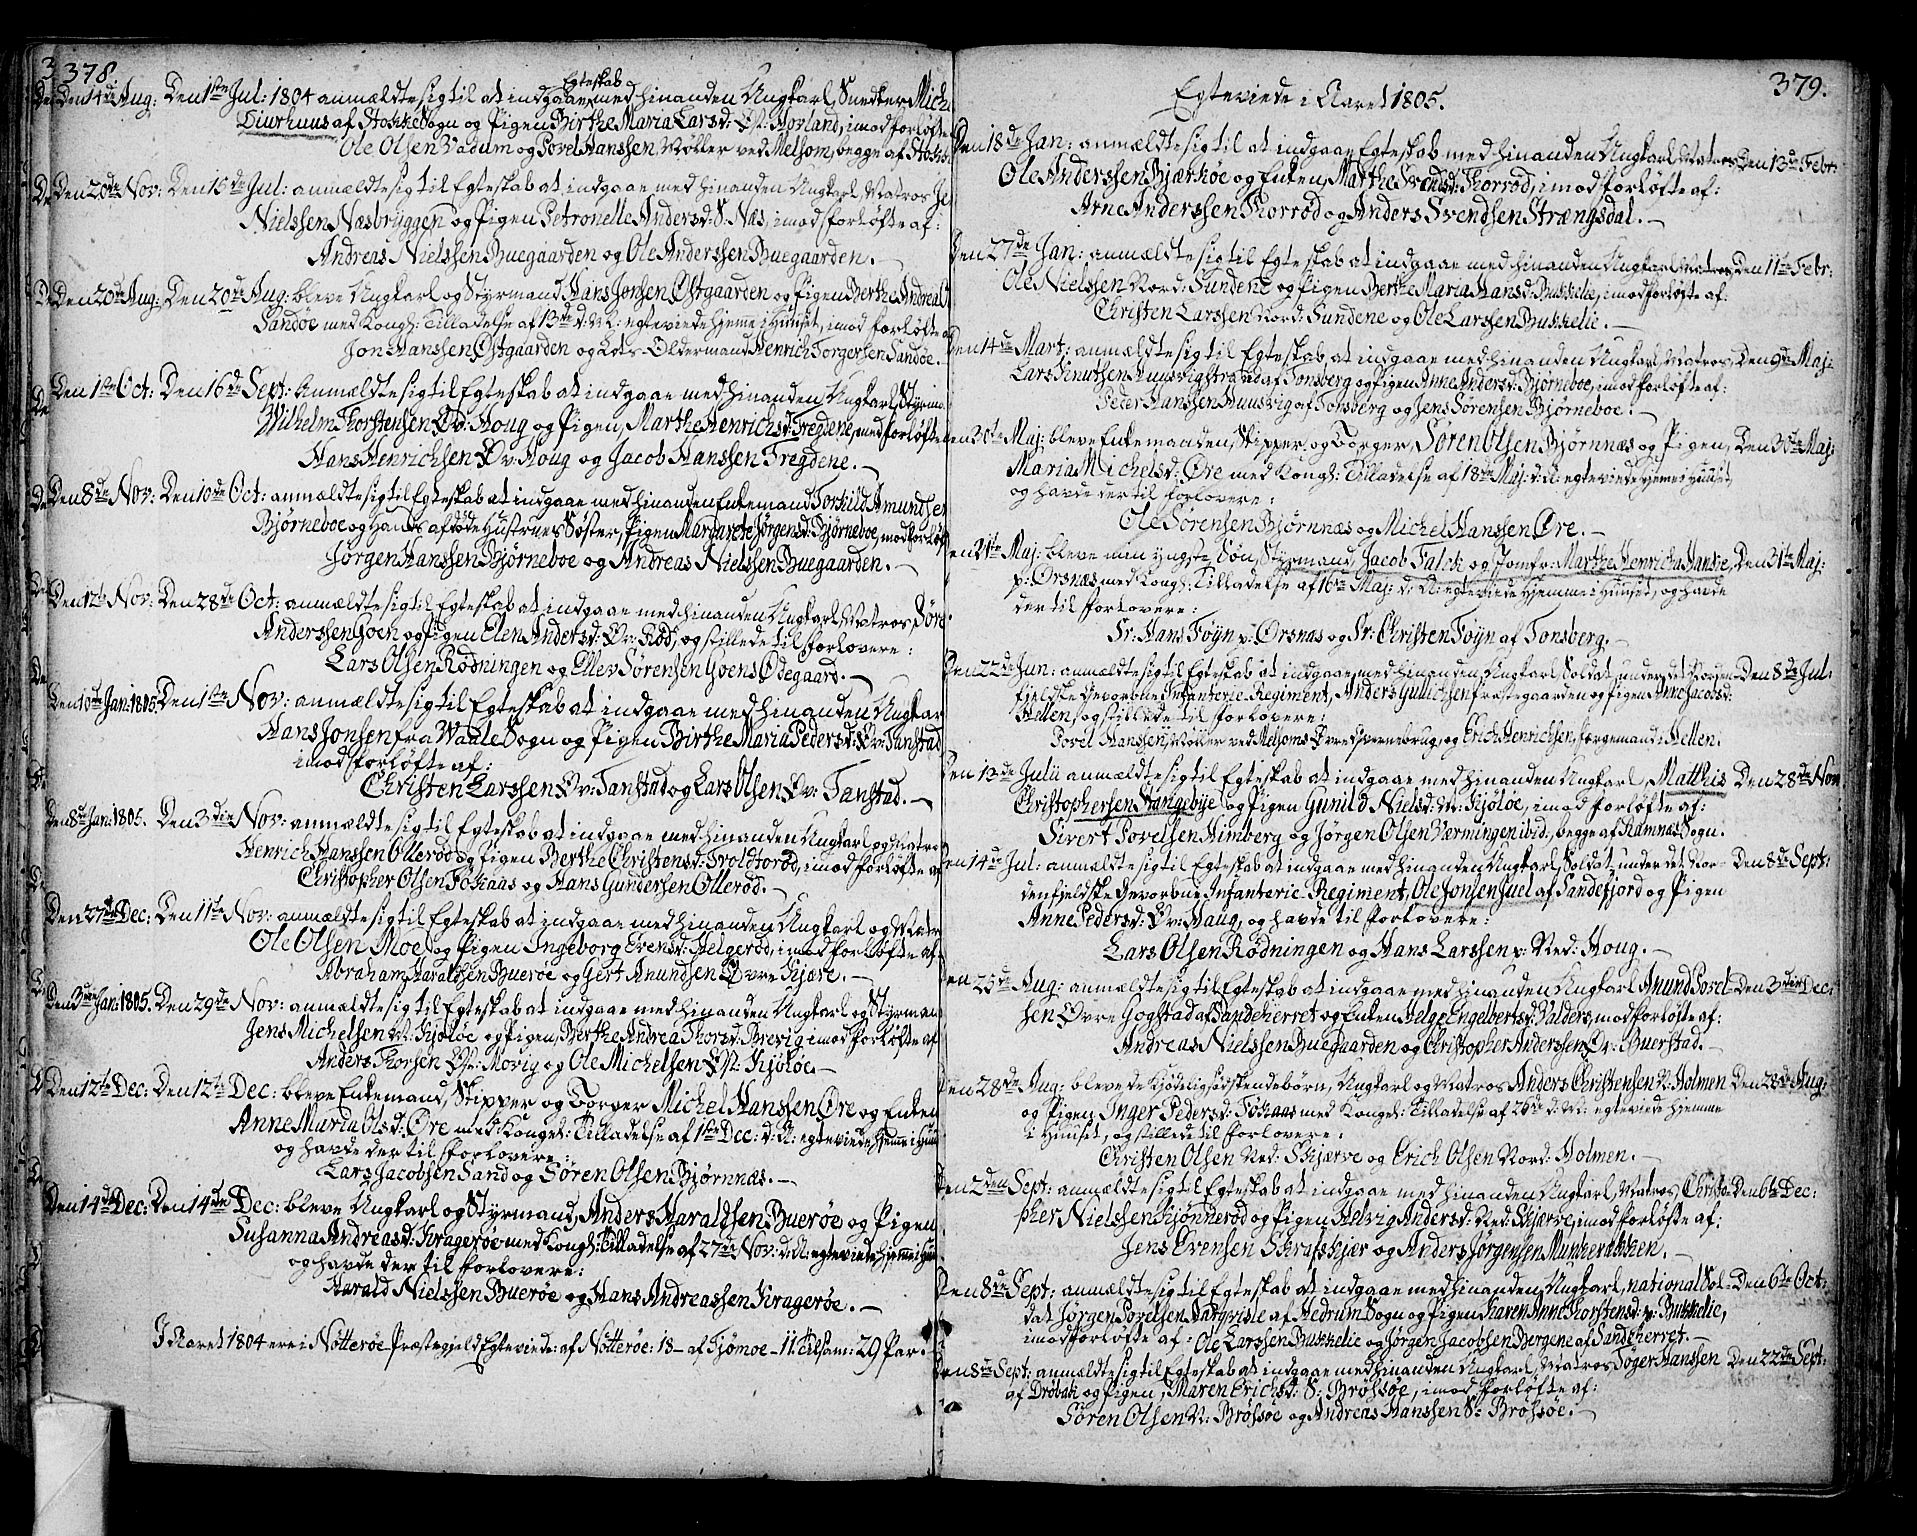 378.
Den 14de Aug: Den 1ste Jul: 1804 anmældte sig til at indgaae Egteskab med hinanden Ungkarl, Snedker Mich
Diurhuus af Stokke Sogn og Pigen Birthe Maria Larsd: Øst: Hovland, imod forløfte
Ole Olsen Vadum og Povel Hanssen Møller ved Melsom, begge af Stokke
Den 20de Nov: Den 15de Jul: anmældte sig til Egteskab at indgaae med hinanden Ungkarl, Matros Je
Nielssen Næsbryggen og Pigen Petronelle Andersd: S: Næs, imod forløfte af:
Andreas Nielssen Buegaarden og Ole Anderssen Buegaarden. —
Den 20de Aug: Den 20de Aug: bleve Ungkarl og Styrmand, Hans Jonsen Østgaarden og Pigen Berthe Andrea
Sandøe med Kongl: Tilladelse af 13de d: M: egteviede hjemme i Huuset, imod forløfte a
Jon Hanssen Østgaarden og Lots-Oldermand Henrich Torgersen Sandøe.
Den 1ste Oct: Den 16de Sept: Anmældte sig til Egteskab at indgaae med hinanden, Ungkarl, Styrm
Wilhelm Thorstensen Øv: Houg og Pigen, Marthe Henrichsd: Tregdene, mod forløfte
Hans Henrichsen Øv: Houg og Jacob Hanssen Tregdene. —
Den 8de Nov: Den 10de Oct: anmældte sig til Egteskab at indgaae med hinanden Enkemand Torkild Amundsen
Bjørneboe og Hands afdøde Hustrues Søster, Pigen Margarete Jørgensd: Bjørneboe, mod forløf
Jørgen Hanssen Bjørneboe og Andreas Nielssen Buegaarden. —
Den 12te Nov: Den 28de Oct: anmældte sig til Egteskab at indgaae med hinanden Ungkarl, Matros, Søre
Anderssen Goen og Pigen Elen Andersd: Øv: Rød, og stillede til forlovere:
Lars Olsen Rødningen og Ellev Sørensen Goens Ødegaard. —
Den 10de Jan: 1805. Den 1ste Nov: anmældte sig til Egteskab at indgaae med hinanden Ungkar
Hans Jonsen fra Waale Sogn og Pigen Birthe Maria Pedersd: Øv: Tanstad
imod forløfte af:
Christen Larssen Øv: Tanstad og Lars Olsen Øv: Tanstad. —
Den 8de Jan: 1805. Den 3die Nov: anmældte sig til Egteskab at indgaae med hinanden Ungkarl og Matro
Henrich Hanssen Ollerød og Pigen Berthe Christensd: Troldtorød, imod forløfte af
Christopher Olsen Føkaas og Hans Gundersen Ollerød. —
Den 27de Dec: Den 11te Nov: anmældte sig til Egteskab at indgaae med hinanden Ungkarl og Matr
Ole Olsen Moe og Pigen Ingeborg Evensd: Helgerød, imod forløfte af.
Abraham Haraldsen Buerøe og Gert Anundsen Øvre Kjære. —
Den 3die Jan: 1805. Den 29de Nov: anmældte sig til Egteskab at indgaae med hinanden Ungkarl og Styrman
Jens Michelsen V: Kjøløe og Pigen, Berthe Andrea Thorsd: Brevig imod forløfte af
Anders Thorsen Øst: Movig og Ole Michelsen Øst: Kjøløe. —
Den 12te Dec: Den 12te Dec: bleve Enkemand, Skipper og Borger Michel Hanssen Øre og Enken
Anne Maria Olsd: Øre med Kongel: Tilladelse af 1ste Dec: d: A: egteviede hjeme i Huus
og havde der til forlovere:
Lars Jacobsen Sand og Søren Olsen Bjørnnæs. —
Den 14de Dec: Den 14de Dec: bleve Ungkarl og Styrmand, Anders Haraldsen Buerøe og Pigen
Susanna Andreasd: Kragerøe med Kongl: Tilladelse af 27de Nov: d: A: egteviede hjemme i Huus
og havde der til forlovere:
Harald Nielssen Buerøe og Hans Andreassen Kragerøe. —
I Aaret 1804 ere i Nøtterøe Præstegjeld Egteviede: af Nøtterøe: 18 – af Tjømoe – 11. tilsam: 29 Par. —
379.
Egteviede i Aaret 1805.
Den 18de Jan: anmældte sig til at indgaae Egteskab med hinanden Ungkarl Matros Den 13de Febr:
Ole Anderssen Bjærkøe og Enken, Marthe Svendsd: Thorrød, imod forløfte af:
Arne Anderssen Thorrød og Anders Svendsen Strængsdal. —
Den 27de Jan: anmældte sig til Egteskab at indgaae med hinanden Ungkarl Matros Den 11te Febr:
Ole Nielssen Nord: Sundene og Pigen Berthe Maria Hansd: Bukkelie, imod forløfte af:
Christen Larssen Nord: Sundene og Ole Larssen Bukkelie. —
Den 14de Mart: anmældte sig til Egteskab, at indgaae med hinanden Ungkarl, Matros Den 9de Maj:
Lars Knutsen Huusvigstrand af Tonsberg og Pigen Anne Andersd: Bjørneboe, imod forløfte af:
Peder Hanssen Huusvig af Tonsberg og Jens Sørensen Bjørneboe. —
Den 30te Maj: bleve Enkemanden, Skipper og Borger, Søren Olsen Bjørnnæs og Pigen, Den 30te Maj:
Maria Michelsd: Øre med Kongl: Tilladelse af 18de Maj: d: A: egteviede hjeme i Huuset,
og havde der til forlovere:
Ole Sørensen Bjørnnæs og Michel Hanssen Øre. —
Den 31te Maj: bleve min yngste Søn, Styrmand, Jacob Falch og Jomfr: Marthe Henricha Hansie, Den 31te Maj:
p: Ørsnæs med Kongl: Tilladelse af 16te Maj: d: A: egteviede hjemme i Huuset, og havde
der til forlovere:
Sr: Hans Føyn p: Ørsnæs og Sr: Christen Føyn af Tonsberg. —
Den 22de Jun: anmældte sig til Egteskab at indgaae med hinanden, Ungkarl Soldat, under det Norden- Den 8de Jul:
fjeldske Gevorbne Infanterie Regiment, Anders Gulichsen Præstegaarden og Pigen Anne Jacobsd:
Hellen, og stillede til forlovere:
Povel Hanssen, Møller ved Melsoms Øvredsvernebrug, og Erich Henrichsen, forgemand: Hellen.
Den 13de Julii anmældte sig til Egteskab at indgaae med hinanden Ungkarl, Matthis Den 28de Nov:
Christophersen Stangebye og Pigen Gunild Nielsd: V: Kjøløe, imod forløfte af:
Sivert Povelsen Himberg og Jørgen Olsen Værmingen ibid, begge af Ramnæs Sogn.
Den 14de Jul: anmældte sig til Egteskab at indgaae med hinanden Ungkarl, Soldat, under det Nor- Den 8de Sept:
denfjeldske Gevorbne Infanterie-Regiment, Ole Jonsen Juel af Sandefjord og Pigen
Anne Pedersd: Øv: Haug, og havde til forlovere:
Lars Olsen Rødningen og Hans Larssen p: Ned: Houg. —
Den 25de Aug: anmældte sig til Egteskab at indgaae med hinanden Ungkarl Anund Povel- Den 3die Dec:
sen Øvre Gogstad af Sandeherret og Enken Helge Engelbertsd: Valders, mod forløfte af:
Andreas Nielssen Buegaarden og Christopher Anderssen Øv: Buerstad. —
Den 28de Aug: bleve de Kjødelig Sødskendebørn, Ungkarl og Matros Anders Christensen N: Holmen Den 28de Aug:
og Pigen Inger Pedersd: Føkaas med Kongel: Tilladelse af 25de d: M: egteviede hjemme
i Huuset, og stillede til forlovere:
Christen Olsen Ned: Skjærve og Erich Olsen Nord: Holmen. —
Den 2den Sept: anmældte sig til Egteskab at indgaae med hinanden Ungkarl, Matros, Christo- Den 6te Dec:
pher Nielssen Kjønnerød og Pigen Helvig Andersd: Ned: Skjærve, imod forløfte af:
Jens Evensen Skrafskjær og Anders Jørgensen Munkerækken. —
Den 8de Sept: anmældte sig til Egteskab at indgaae med hinanden Ungkarl, national Sol- Den 6te Oct:
dat Jørgen Povelsen Aargvisle af Hedrum Sogn og Pigen Karen Anne Thorstensd: p: Bukkelie,
imod forløfte af: Ole Larssen Bukkelie og Jørgen Jacobsen Bergene af Sandeherret. —
Den 8de Sept: anmældte sig til Egteskab at indgaae med hinanden Ungkarl, Matros Tøger Hanssen Den 22de Sept:
af Drøbak og Pigen, Maren Erichsd: S: Brøssøe, imod forløfte af:
Søren Olsen N: Brøssøe og Andreas Hanssen S: Brøssøe. —